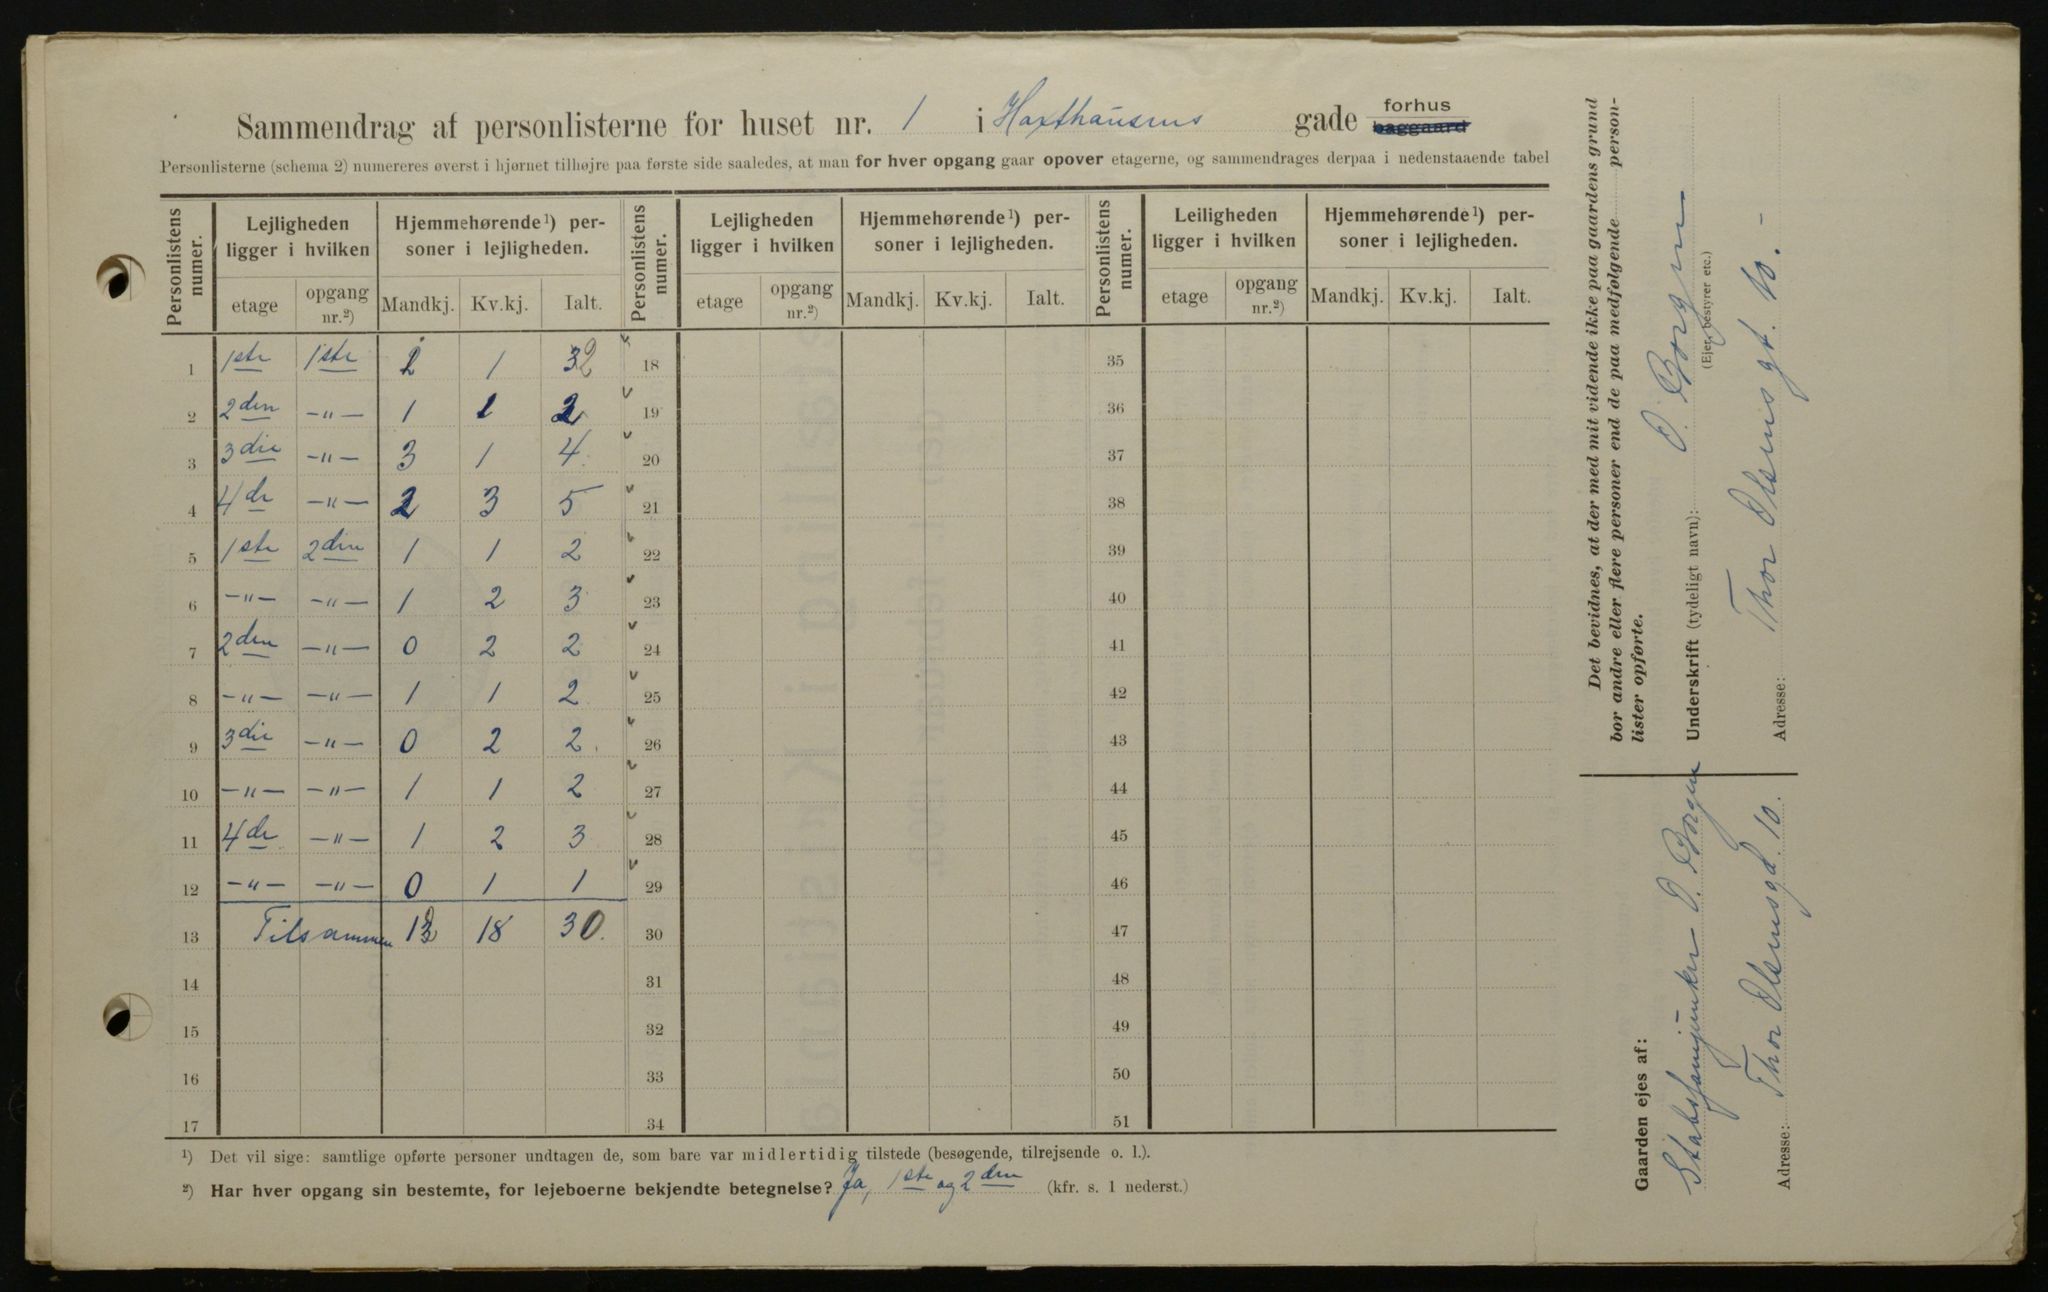 Sammendrag af personlisterne for huset nr. 1 i Haxthausens gade forhus baggaard
Personlisterne (schema 2) numereres øverst i hjørnet tilhøjre paa første side saaledes, at man for hver opgang gaar opover etagerne, og sammendrages derpaa i nedenstaaende tabel
Personlistens numer. Lejligheden ligger i hvilken Hjemmehørende¹) personer i lejligheden. Personlistens numer. Lejligheden ligger i hvilken Hjemmehørende¹) personer i lejligheden. Personlistens numer. Leiligheden ligger i hvilken Hjemmehørende¹) personer i lejligheden.
etage opgang nr.²) Mandkj. Kv.kj. Ialt. etage opgang nr.²) Mandkj. Kv.kj. Ialt. etage opgang nr.²) Mandkj. Kv.kj. Ialt.
1 1ste 1ste 2 1 32 18 35
2 2den –"– 1 1 2 19 36
3 3die –"– 3 1 4 20 37
4 4de –"– 2 3 5 21 38
5 1ste 2den 1 1 2 22 39
6 –"– –"– 1 2 3 23 40
7 2den –"– 0 2 2 24 41
8 –"– –"– 1 1 2 25 42
9 3die –"– 0 2 2 26 43
10 –"– –"– 1 1 2 27 44
11 4de –"– 1 2 3 28 45
12 –"– –"– 0 1 1 29 46
13 Tilsammen 12 18 30 30 47
14 31 48
15 32 49
16 33 50
17 34 51
¹) Det vil sige: samtlige opførte personer undtagen de, som bare var midlertidig tilstede (besøgende, tilrejsende o. l.).
²) Har hver opgang sin bestemte, for lejeboerne bekjendte betegnelse? Ja, 1ste og 2den (kfr. s. 1 nederst.)
Det bevidnes, at der med mit vidende ikke paa gaardens grund
bor andre eller flere personer end de paa medfølgende person-
lister opførte.
Underskrift (tydeligt navn): O. Borgen
(Ejer, bestyrer etc.)
Adresse: Thor Olsens gt. 10.
Gaarden ejes af:
Stabsfanejunker O. Borgen
Adresse: Thor Olsensgd. 10.